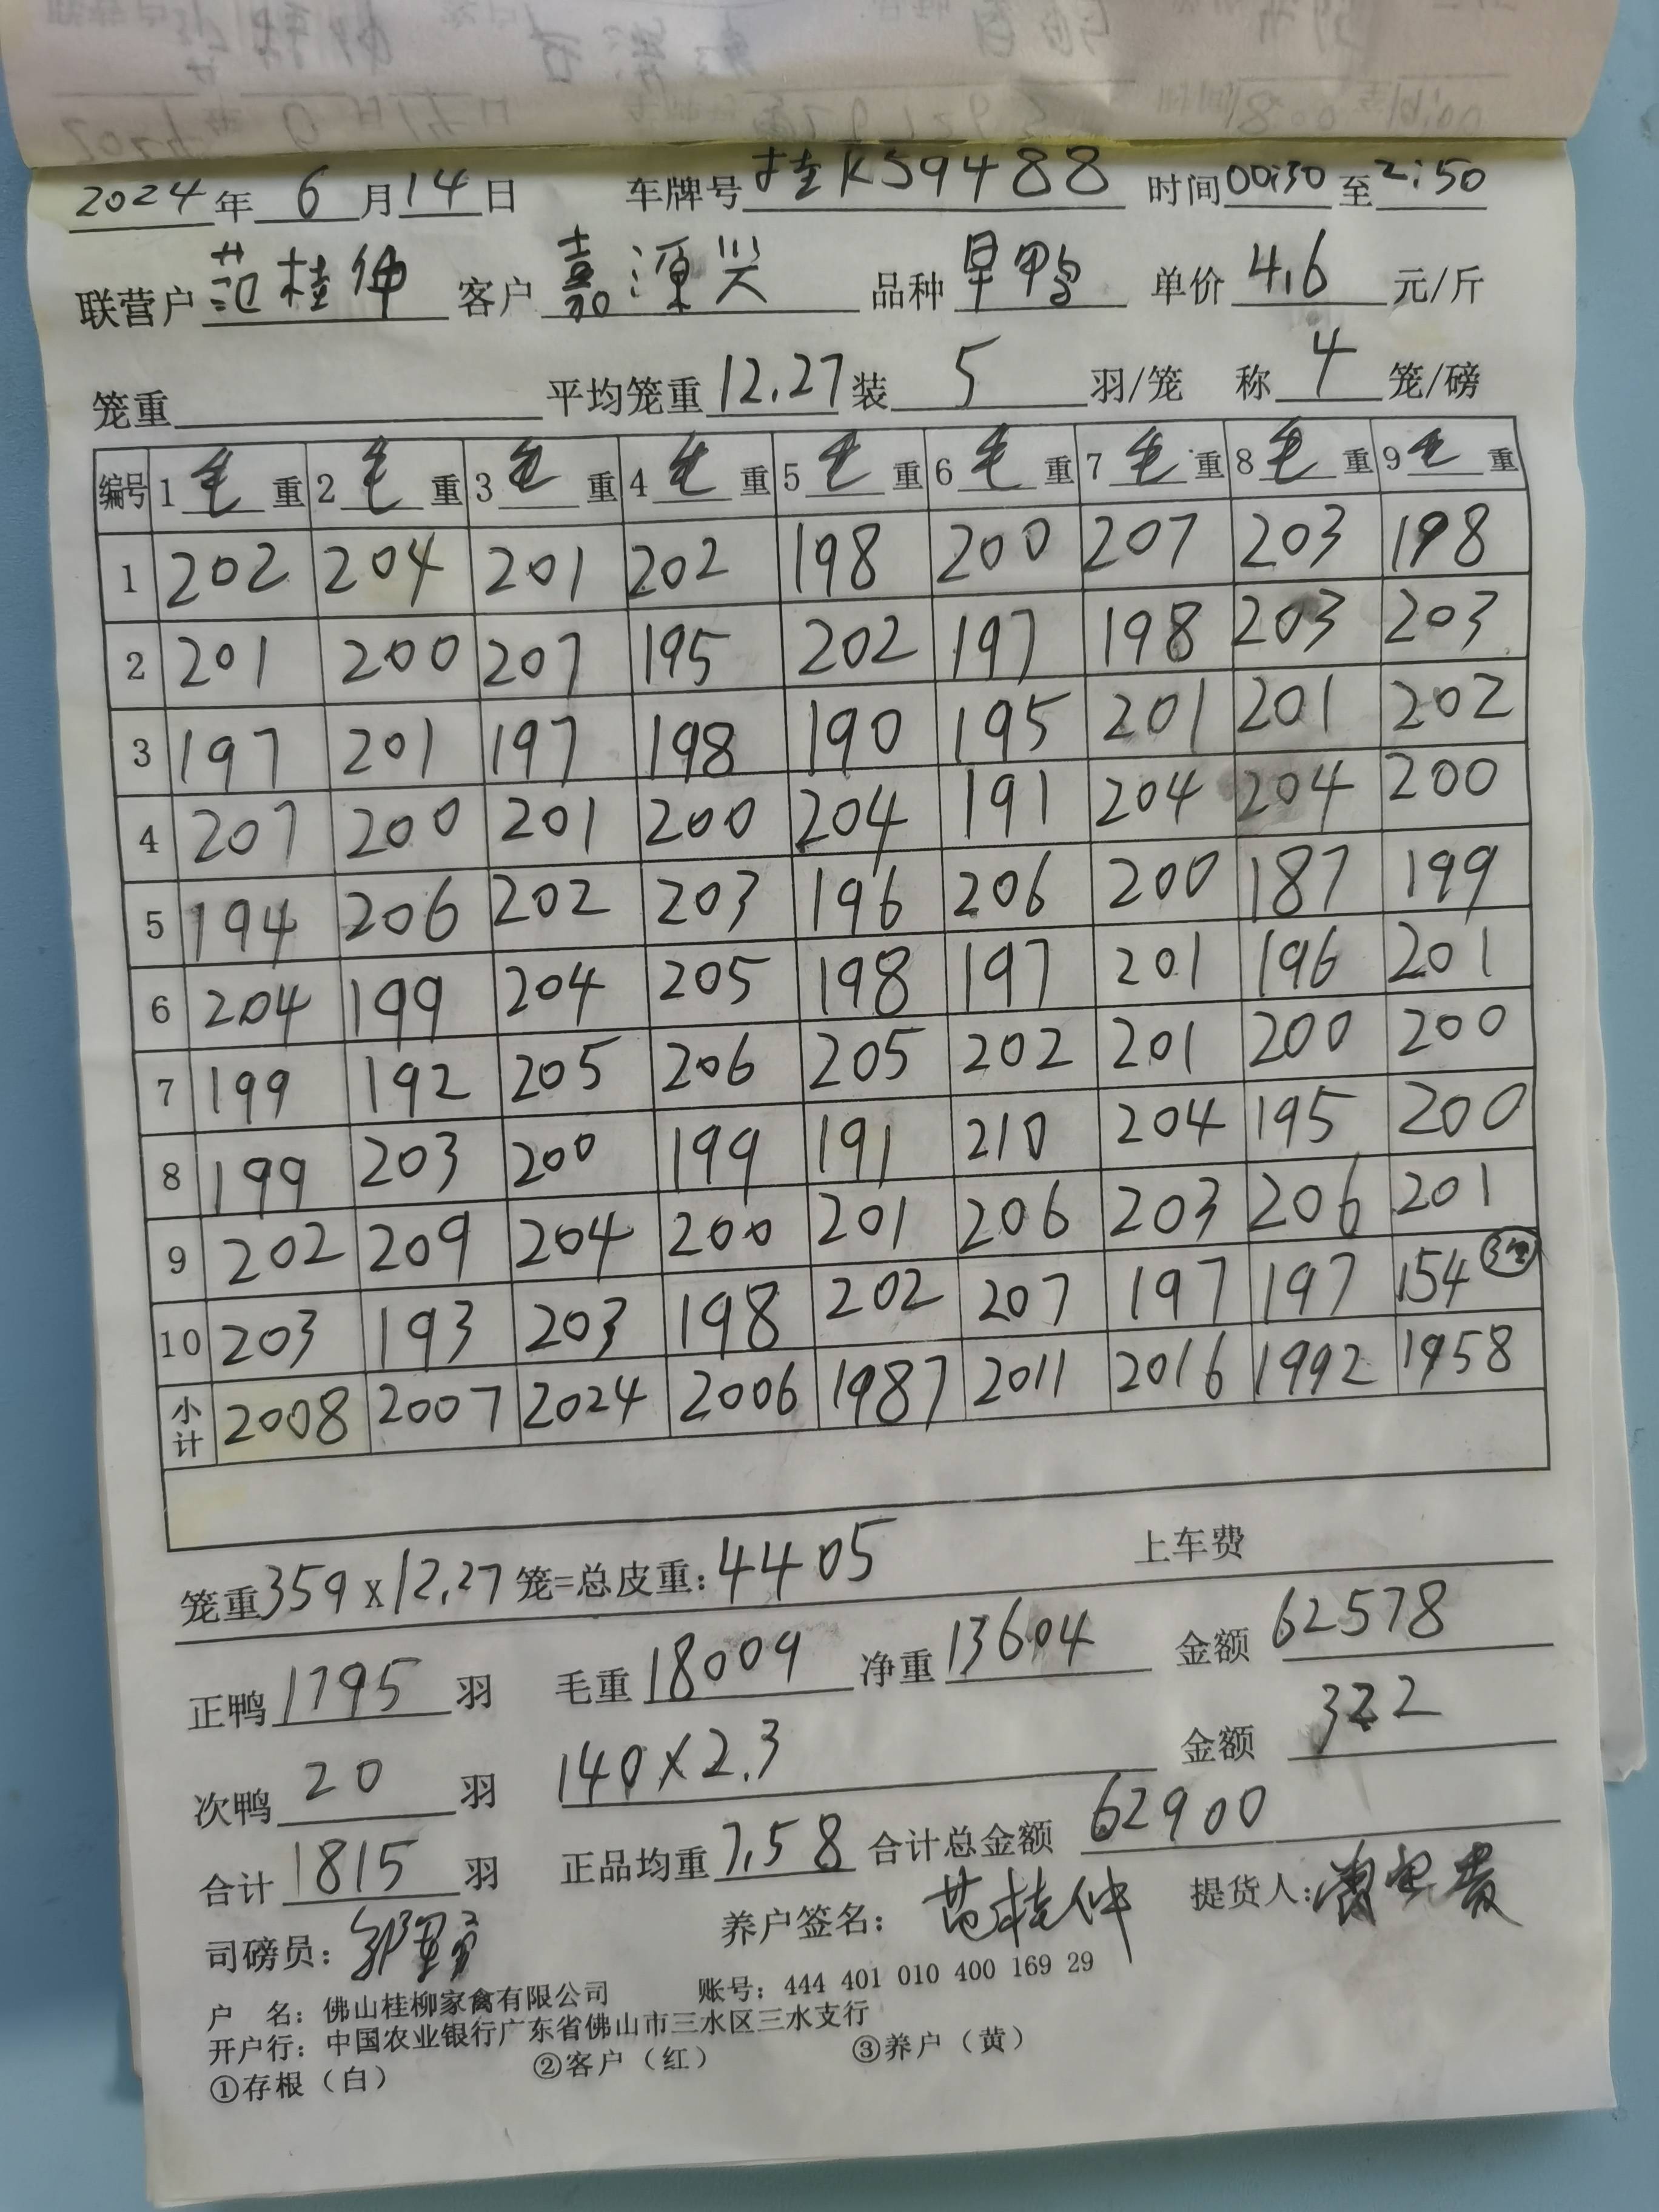 2024年 6 月 14 日 车牌号 桂KS9488 时间 00:30 至 2:50
联营户 范桂仲 客户 嘉源兴 品种 旱鸭 单价 4.6 元/斤
笼重 平均笼重 12.27 装 5 羽/笼 称 4 笼/磅
编号 1 毛 重 2 毛 重 3 毛 重 4 毛 重 5 毛 重 6 毛 重 7 毛 重 8 毛 重 9 毛 重
1 202 204 201 202 198 200 207 203 198
2 201 200 207 195 202 197 198 203 203
3 197 201 197 198 190 195 201 201 202
4 207 200 201 200 204 191 204 204 200
5 194 206 202 203 196 206 200 187 199
6 204 199 204 205 198 197 201 196 201
7 199 192 205 206 205 202 201 200 200
8 199 203 200 199 191 210 204 195 200
9 202 209 204 200 201 206 203 206 201
10 203 193 203 198 202 207 197 197 154
小计 2008 2007 2024 2006 1987 2011 2016 1992 1958
笼重 359 x 12.27 笼=总皮重: 4405 上车费
正鸭 1795 羽 毛重 18009 净重 13604 金额 62578
次鸭 20 羽 140×2.3 金额 322
合计 1815 羽 正品均重 7.58 合计总金额 62900
司磅员: 养户签名: 范桂仲 提货人:
户 名: 佛山桂柳家禽有限公司 账号: 444 401 010 400 169 29
开户行: 中国农业银行广东省佛山市三水区三水支行
①存根（白） ②客户（红） ③养户（黄）